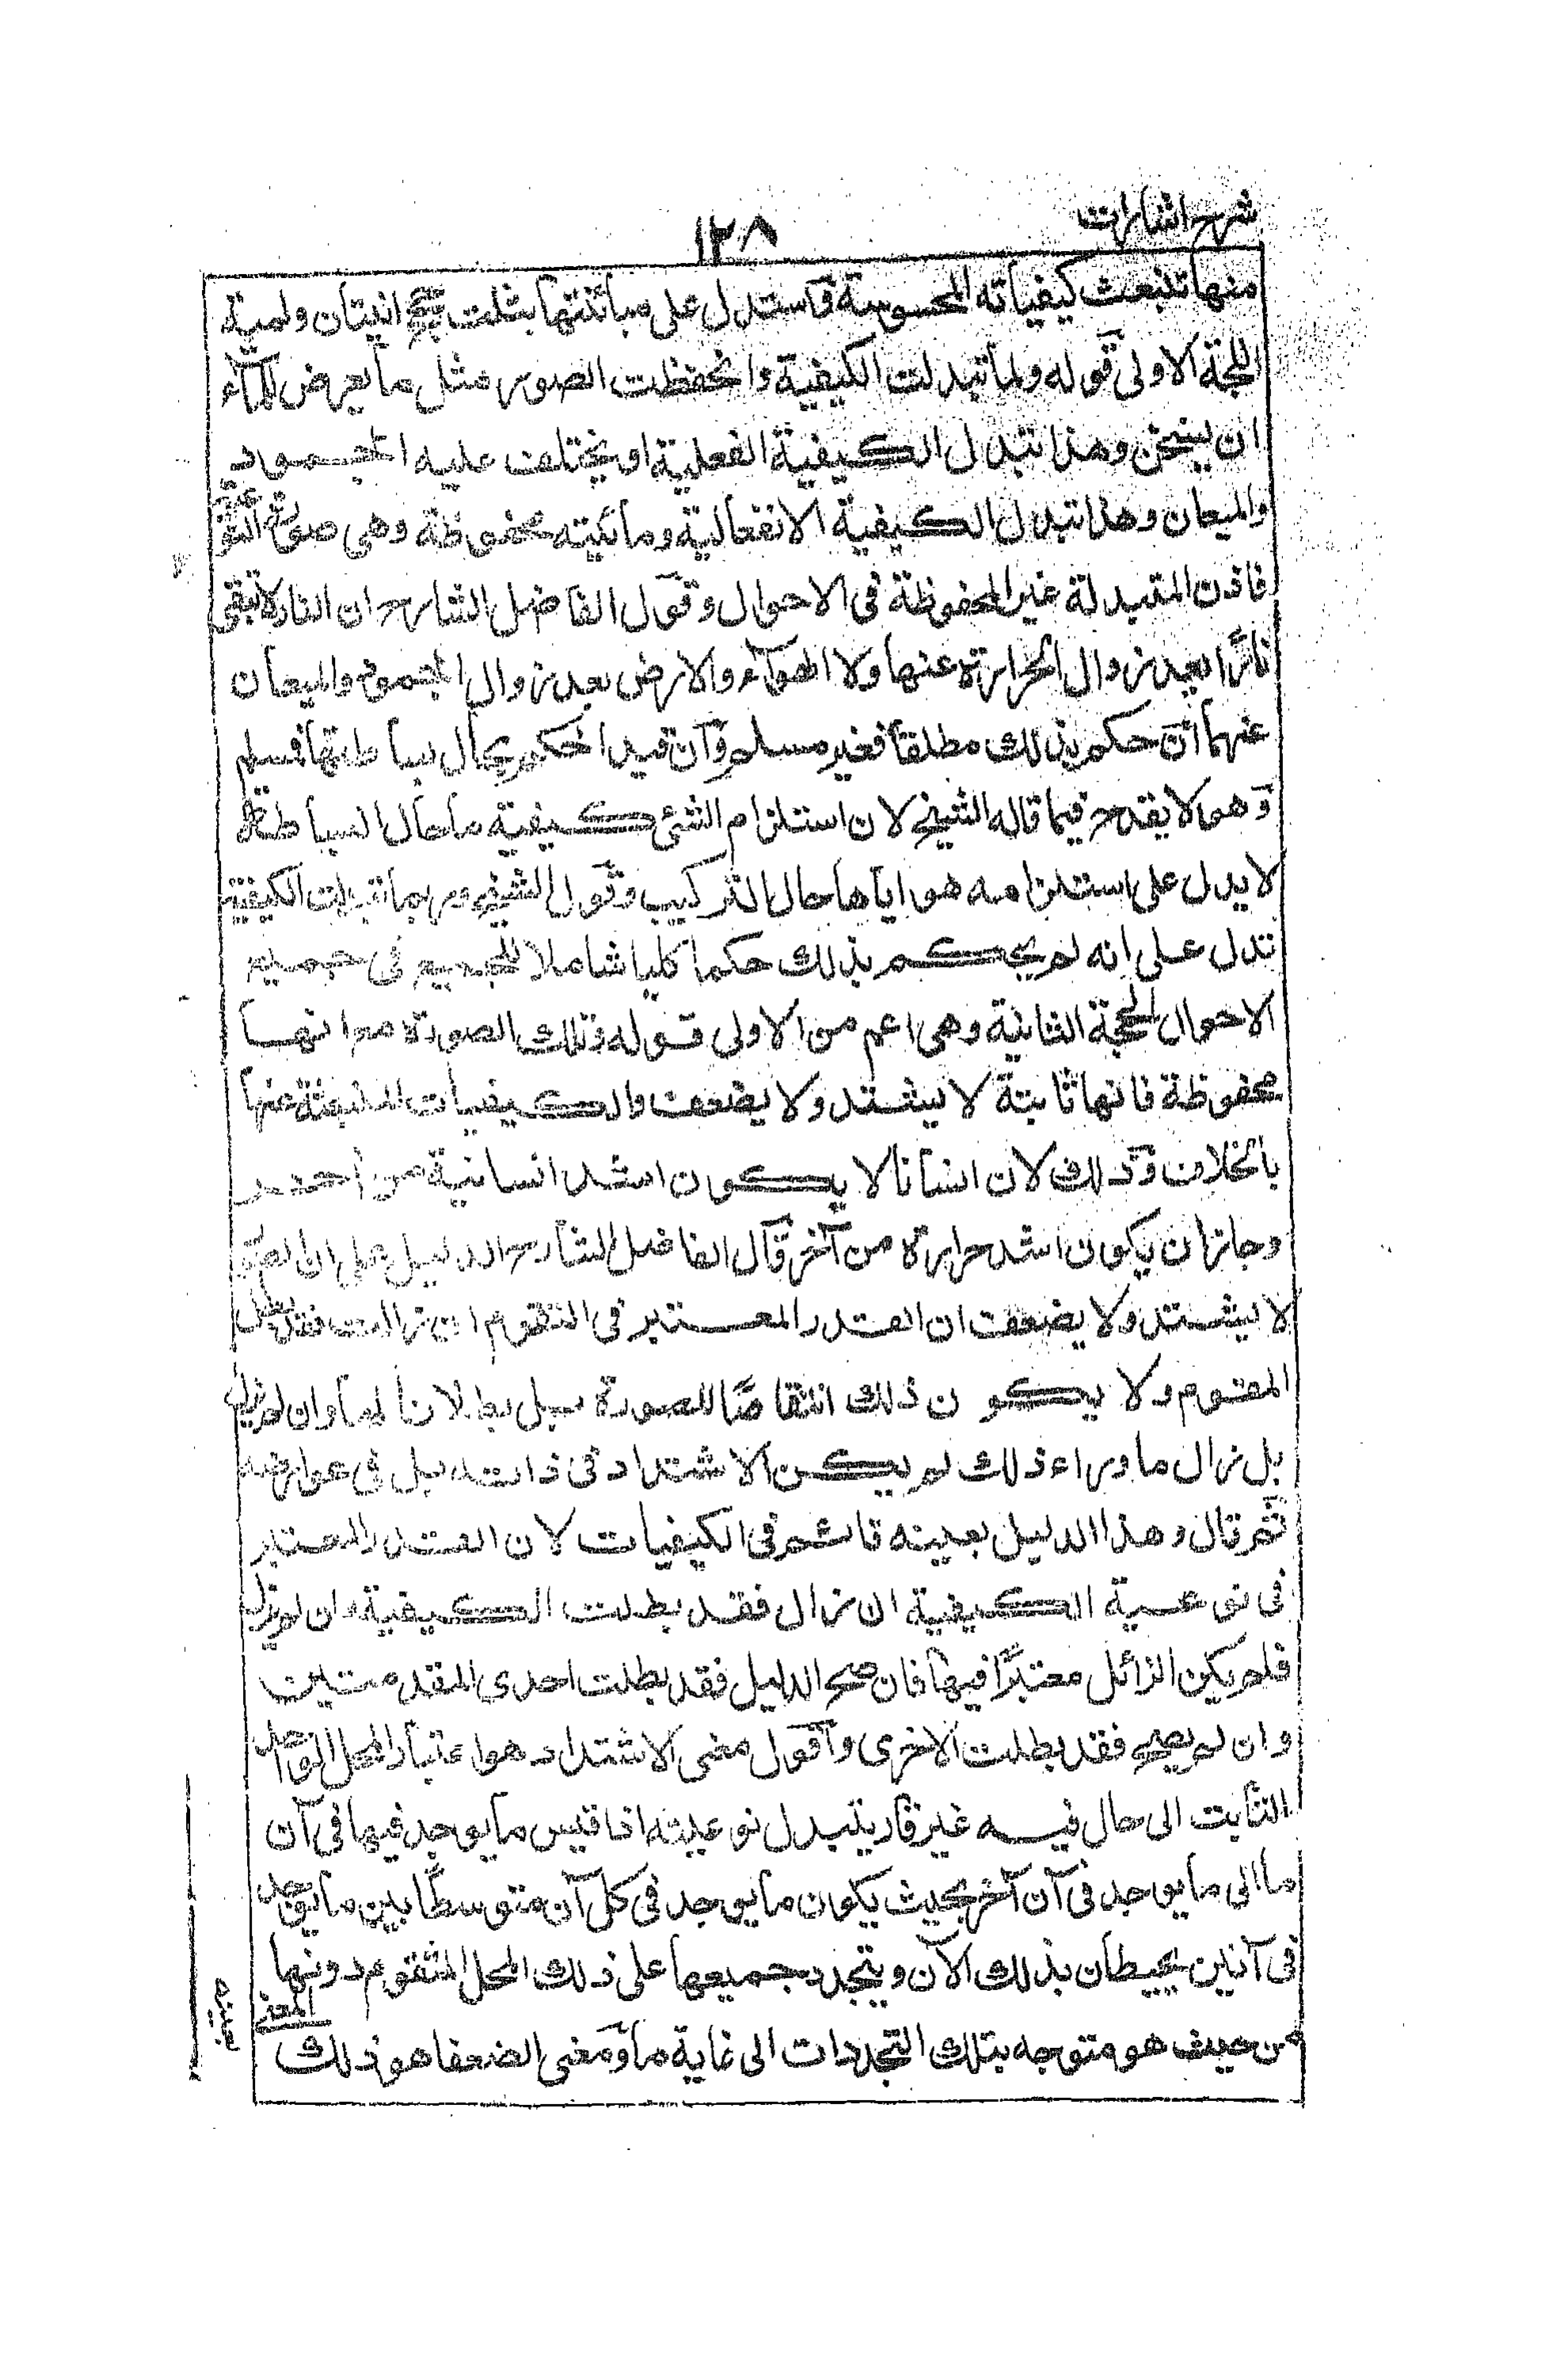 شرح اشارات
١٢٨
منها تنبعث كيفياته المحسوسة فاستدل على مبائنتها بثلث حجج انيتان ولمية
الحجة الاولى قوله ولما تبدلت الكيفية وانحفظت الصور مثل ما يعرض للماء
ان يسخن وهذا تبدل الكيفية الفعلية او يختلف عليه الجمود
والميعان وهذا تبدل الكيفية الانفعالية ومائيته محفوظة وهى صورته النوعية
فاذن المتبدلة غير المحفوظة فى الاحوال وقول الفاضل الشارح ان النار لا تبقى
نارًا بعد زوال الحرارة عنها ولا الهواء والارض بعد زوال الجمود والميعان
عنهما ان حكم بذلك مطلقا فغير مسلم وان قيد الحكم بحال بساطتها فمسلم
وهو لا يقدح فيما قاله الشيخ لان استلزام الشئ كيفية ما حال البساطة
لا يدل على استلزامه هو اياها حال التركيب وقول الشيخ وربما تبدلت الكيفية
تدل على انه لم يحكم بذلك حكما كليا شاملا للجميع فى جميع
الاحوال الحجة الثانية وهى اعم من الاولى قوله وتلك الصورة مع انها
محفوظة فانها ثابتة لا يشتد ولا يضعف والكيفيات المنبعثة عنها
بالخلاف وذلك لان انسانا لا يكون اشد انسانية من آخر
وجاز ان يكون اشد حرارة من آخر قال الفاضل الشارح الدليل على ان الصورة
لا يشتد ولا يضعف ان القدر المعتبر فى التقوم ان زالت فقد بطل
المقوم ولا يكون ذلك انتقاصًا للصورة بل بطلانا لها وان لم يزل
بل زال ما وراء ذلك لم يكن الاشتداد فى ذاته بل فى عوارضه
ثم قال وهذا الدليل بعينه قائم فى الكيفيات لان القدر المعتبر
فى نوعية الكيفية ان زال فقد بطلت الكيفية وان لم يزل
فلم يكن الزائل معتبرًا فيها فان صح الدليل فقد بطلت احدى المقدمتين
وان لم يصح فقد بطلت الاخرى واقول معنى الاشتداد هو اعتبار المحل الواحد
الثابت الى حال فيه غير قار يتبدل نوعيته اذا قيس ما يوجد فيها فى آن
ما الى ما يوجد فى آن آخر بحيث يكون ما يوجد فى كل آن متوسطا بين ما يوجد
فى آنين يحيطان بذلك الآن ويتجدد جميعها على ذلك المحل المتقوم دونها
من حيث هو متوجه بتلك التجددات الى غاية ما ومعنى الضعف هو ذلك
المعنى
بعينه